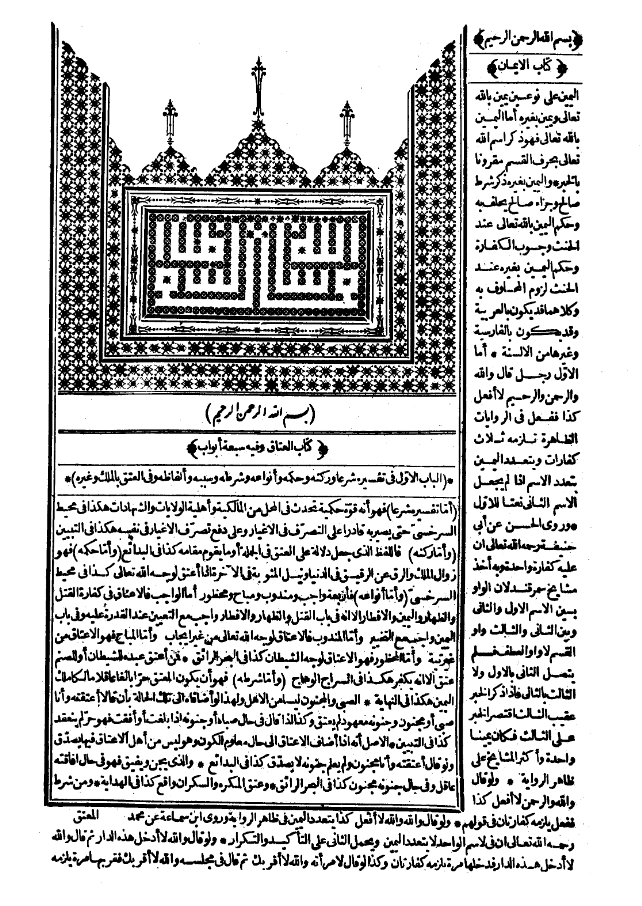 (بسم الله الرحمن الرحيم)
﴿ كتاب العتاق وفيه سبعة أبواب ﴾
*(الباب الاول فى تفسيره شرعا وركنه وحكمه وأنواعه وشرطه وسببه وألفاظه وفى العتق بالملك وغيره)*
(أما تفسيره شرعا) فهو أنه قوة حكمية تحدث فى المحل من المالكية وأهلية الولايات والشهادات هكذا فى محيط
السرخسى حتى يصير به قادرا على التصرف فى الاغيار وعلى دفع تصرف الاغيار فى نفسه هكذا فى التبيين
(وأما ركنه) فاللفظ الذى جعل دلالة على العتق فى الجملة أو ما يقوم مقامه كذا فى البدائع (وأما حكمه) فهو
زوال الملك والرق عن الرقيق فى الدنيا ونيل المثوبة فى الآخرة اذا أعتق لوجه الله تعالى كذا فى محيط
السرخسى (وأما أنواعه) فأربعة واجب ومندوب ومباح ومحظور أما الواجب فالاعتاق فى كفارة القتل
والظهار واليمين والافطار الا أنه فى باب القتل والظهار والافطار واجب مع التعيين عند القدرة عليه وفى باب
اليمين واجب مع التخيير وأما المندوب فالاعتاق لوجه الله تعالى من غير ايجاب وأما المباح فهو الاعتاق من
غير نية وأما المحظور فهو الاعتاق لوجه الشيطان كذا فى البحر الرائق * فمن أعتق عبده للشيطان أو للصنم
عتق الا أنه يكفر هكذا فى السراج الوهاج (وأما شرطه) فهو أن يكون المعتق حرا بالغا عاقلا مالكا ملك
اليمين هكذا فى النهاية * الصبى والمجنون ليسا من الاهل ولهذا لو أضافاه الى تلك الحالة بأن قالا أعتقته وأنا
صبى أو مجنون وجنونه معهود لم يعتق وكذا اذا قال فى حال صباه أو جنونه اذا بلغت أو أفقت فهو حر لم ينعقد
كذا فى التبيين * الاصل أنه اذا أضاف الاعتاق الى حال معلوم الكون وهو ليس من أهل الاعتاق فيها يصدق
ولو قال أعتقته وأنا مجنون ولم يعلم جنونه لا يصدق كذا فى البدائع * والذى يجن ويفيق فهو فى حال افاقته
عاقل وفى حال جنونه مجنون كذا فى البحر الرائق * وعتق المكره والسكران واقع كذا فى الهداية * ومن شرط
المعتق
﴿بسم الله الرحمن الرحيم﴾
﴿ كتاب الايمان ﴾
اليمين على نوعين يمين بالله
تعالى ويمين بغيره أما اليمين
بالله تعالى فهو ذكر اسم الله
تعالى بحرف القسم مقرونا
بالخبر * واليمين بغيره ذكر شرط
صالح وجزاء صالح يحلف به
وحكم اليمين بالله تعالى عند
الحنث وجوب الكفارة
وحكم اليمين بغيره عند
الحنث لزوم المحلوف به
وكلاهما قد يكون بالعربية
وقد يكون بالفارسية
وغيرها من الالسنة * أما
الاول رجل قال والله
والرحمن والرحيم لا أفعل
كذا ففعل فى الروايات
الظاهرة تلزمه ثلاث
كفارات ويتعدد اليمين
بتعدد الاسم اذا لم يجعل
الاسم الثانى نعتا للاول
* وروى الحسن عن أبى
حنيفة رحمه الله تعالى أن
عليه كفارة واحدة وبه أخذ
مشايخ سمرقند لان الواو
بين الاسم الاول والثانى
وبين الثانى والثالث واو
القسم لا واو العطف فلم
يتصل الثانى بالاول ولا
الثالث بالثانى فاذا ذكر الخبر
عقيب الثالث اقتصر الخبر
على الثالث فكان يمينا
واحدة وأكثر المشايخ على
ظاهر الرواية * ولو قال
والله والرحمن لا أفعل كذا
ففعل يلزمه كفارتان فى قولهم * ولو قال والله والله لا أفعل كذا يتعدد اليمين فى ظاهر الرواية وروى ابن سماعة عن محمد
رحمه الله تعالى أن فى الاسم الواحد لا يتعدد اليمين ويحمل الثانى على التأكيد والتكرار * ولو قال والله لا أدخل هذه الدار ثم قال والله
لا أدخل هذه الدار فدخلها مرة يلزمه كفارتان وكذا لو قال لامرأته والله لا أقربك ثم قال فى مجلسه والله لا أقربك فقربها مرة يلزمه